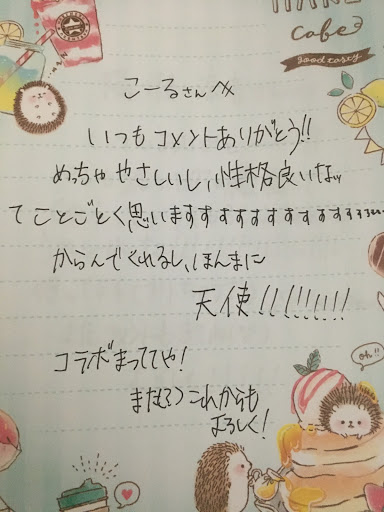 Cafe
good tasty
こーるさんへ
いつもコメントありがとう!!
めっちゃやさしいし、性格良いなッ
てことごとく思いますすすすすすすすすすすす
からんでくれるし、ほんまに
天使!!!!!!!!!
コラボまっててや!
oh!!
また(?)これからも
よろしく!